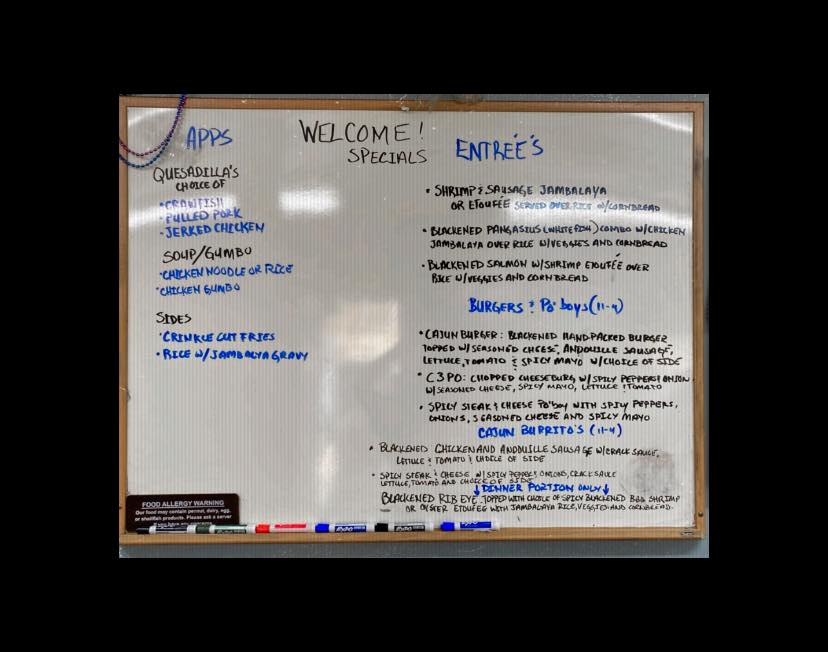 WELCOME!
SPECIALS
APPS
QUESADILLA'S
CHOICE OF
• CRAWFISH
• PULLED PORK
• JERKED CHICKEN
SOUP/GUMBO
• CHICKEN NOODLE OR RICE
• CHICKEN GUMBO
SIDES
• CRINKLE CUT FRIES
• RICE W/JAMBALYA GRAVY
ENTREÉ'S
• SHRIMP & SAUSAGE JAMBALAYA
OR ETOUFÉE SERVED OVER RICE W/CORNBREAD
• BLACKENED PANGASIUS (WHITEFISH) COMBO W/CHICKEN
JAMBALAYA OVER RICE W/VEGGIES AND CORNBREAD
• BLACKENED SALMON W/SHRIMP ETOUFÉE OVER
RICE W/VEGGIES AND CORNBREAD
BURGERS & Po' boys (11-4)
• CAJUN BURGER: BLACKENED HAND PACKED BURGER
TOPPED W/SEASONED CHEESE, ANDOUILLE SAUSAGE,
LETTUCE, TOMATO & SPICY MAYO W/CHOICE OF SIDE
• C3PO: CHOPPED CHEESEBURG W/SPICY PEPPERS & ONION
W/SEASONED CHEESE, SPICY MAYO, LETTUCE & TOMATO
• SPICY STEAK & CHEESE PO'boy WITH SPICY PEPPERS,
ONIONS, SEASONED CHEESE AND SPICY MAYO
CAJUN BURRITO'S (11-4)
• BLACKENED CHICKEN AND ANDOUILLE SAUSAGE W/CRACK SAUCE,
LETTUCE & TOMATO & CHOICE OF SIDE
• SPICY STEAK & CHEESE W/SPICY PEPPERS, ONIONS, CRACK SAUCE
LETTUCE, TOMATO AND CHOICE OF SIDE
↓ DINNER PORTION ONLY ↓
BLACKENED RIB EYE TOPPED WITH CHOICE OF SPICY BLACKENED BBQ SHRIMP
OR OYSTER ETOUFEÉ WITH JAMBALAYA RICE, VEGGIES AND CORNBREAD.
FOOD ALLERGY WARNING
Our food may contain peanut, dairy, egg,
or shellfish products. Please ask a server
if you have any concerns
EXPO
EXPO
EXPO